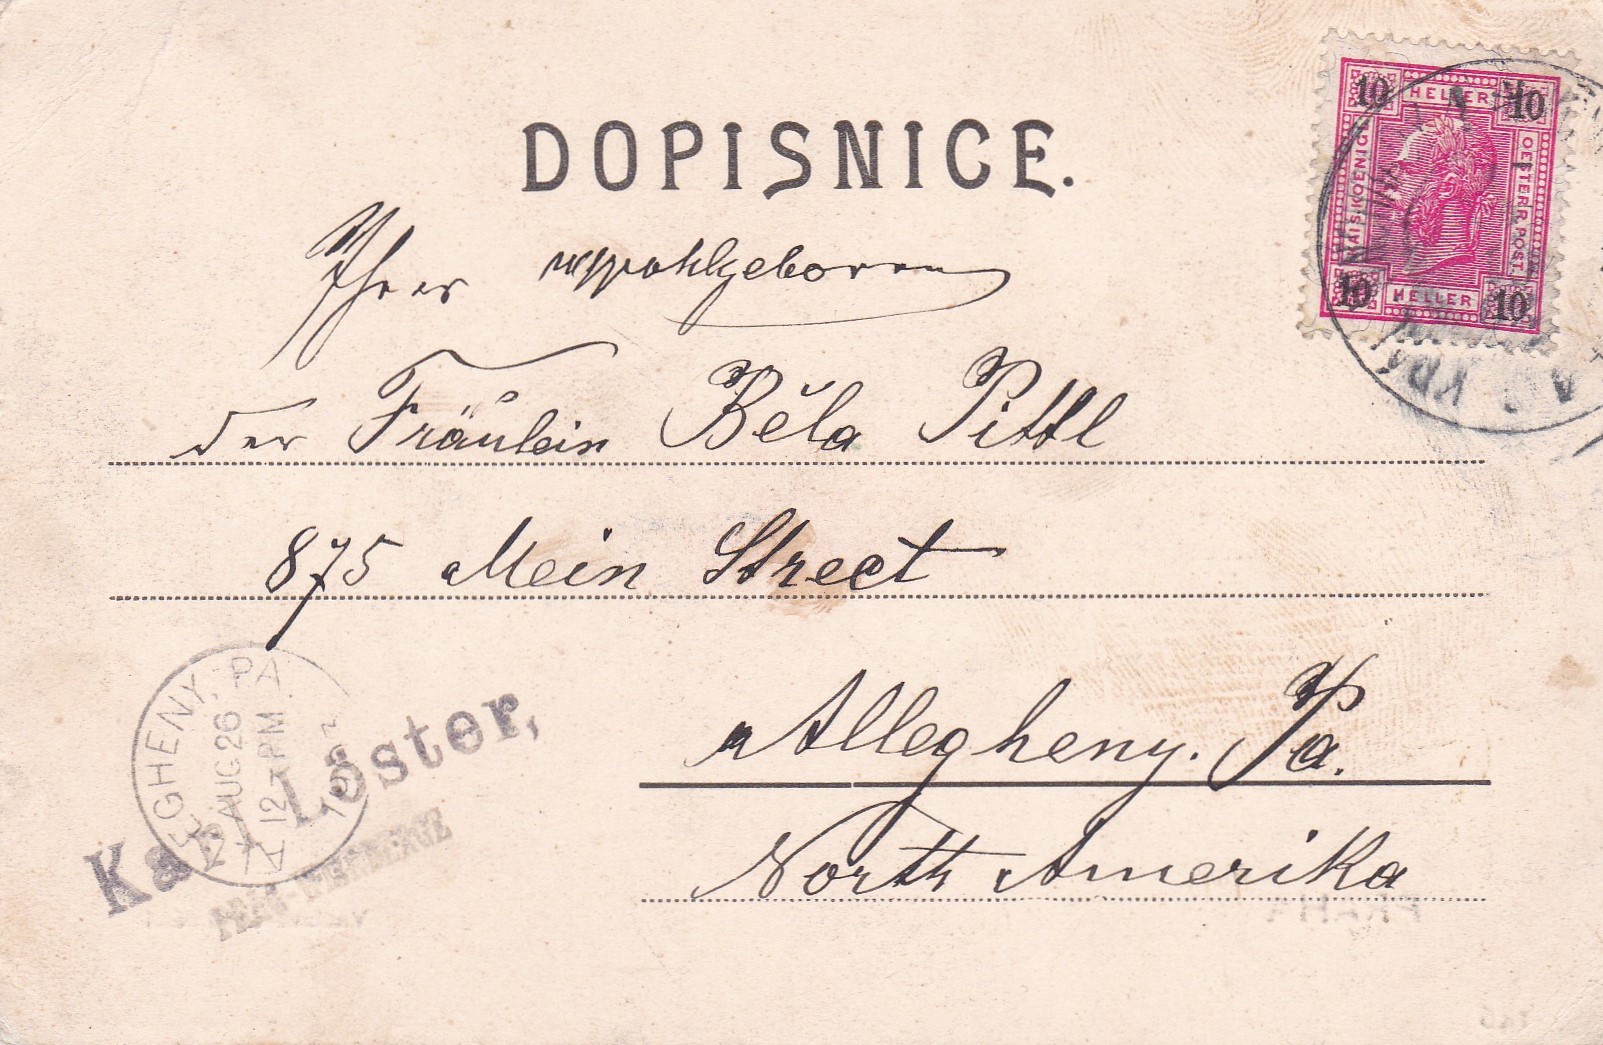 DOPISNICE.
10 HELLER 10
KAIS. KOENIGL. OESTERR. POST.
10 HELLER 10
Ihrer wohlgeboren
der Fräulein Běla Pittl
875 Mein Street
Allegheny. Pa.
North Amerika
ALLEGHENY, PA.
AUG 26
12 - PM
190
Karl Löster,